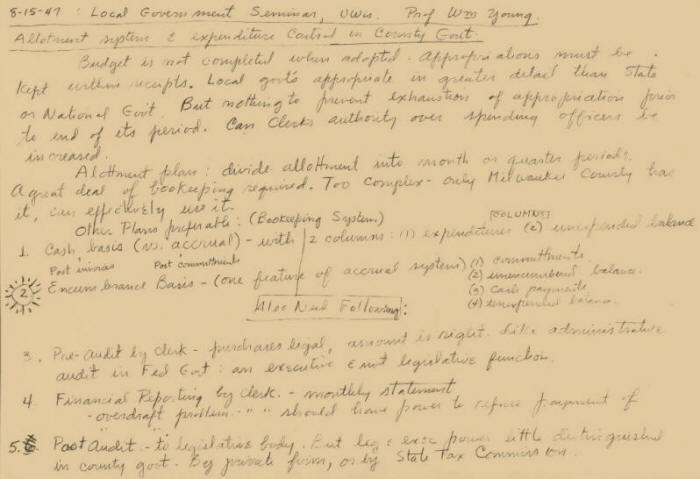 8-15-47 : Local Government Seminar, UWis. Prof Wm Young.
Allotment system & expenditure Control in County Govt.
Budget is not completed when adopted. Appropriations must be
kept within receipts. Local govts appropriate in greater detail than State
or National Govt. But nothing to prevent exhaustion of appropriation prior
to end of its period. Can Clerks authority over spending officers be
increased.
Alottment plan: divide allottment into month or quarter periods.
A great deal of bookeeping required. Too complex - only Milwaukee County has
it, can effectively use it.
Other Plans preferable: (Bookeeping System)
1. Cash basis (vs. accrual) - with 2 columns: (1) expenditures (2) unexpended balance
COLUMNS
Post invoices Post committments
2 Encumbrance Basis - (one feature of accrual system) (1) committments.
(2) unencumbered balance.
(3) cash payments.
(4) unexpended balance.
Also Need Following:
3. Pre-Audit by clerk - purchases legal, amount is right. Like administrative
audit in Fed Govt: an executive & not legislative function.
4. Financial Reporting by Clerk. - monthly statement
- overdraft problem - " " should have power to refuse payment of
5. Post Audit. - to legislative body. But leg & exec power little distinguished
in county govt. By private firm, or by State Tax Commission.